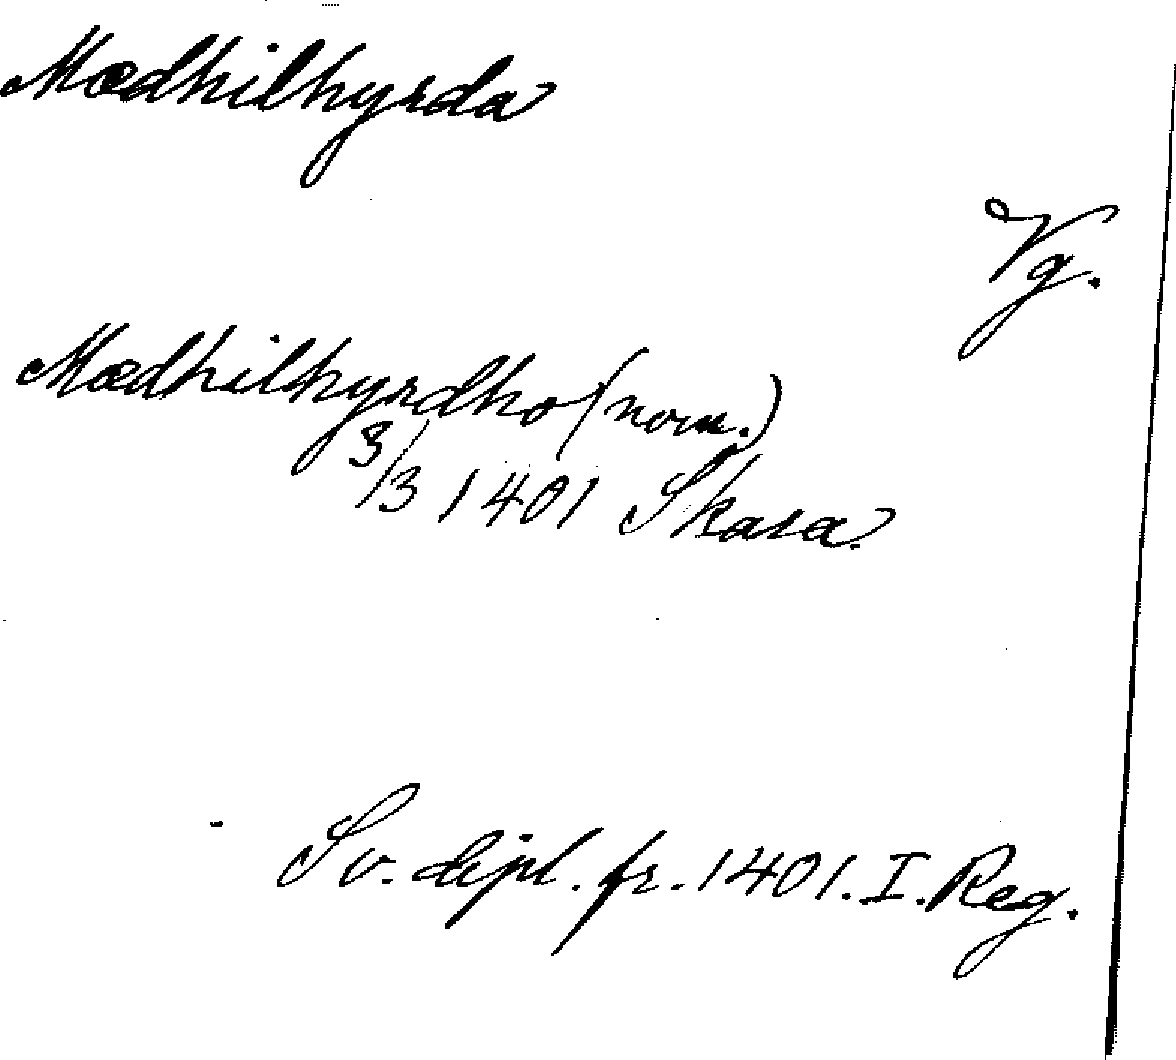 Mædhilhyrda
Vg.
Mædhilhyrdho (nom.)
3/3 1401 Skara.
Sv. dipl. fr. 1401. I. Reg.